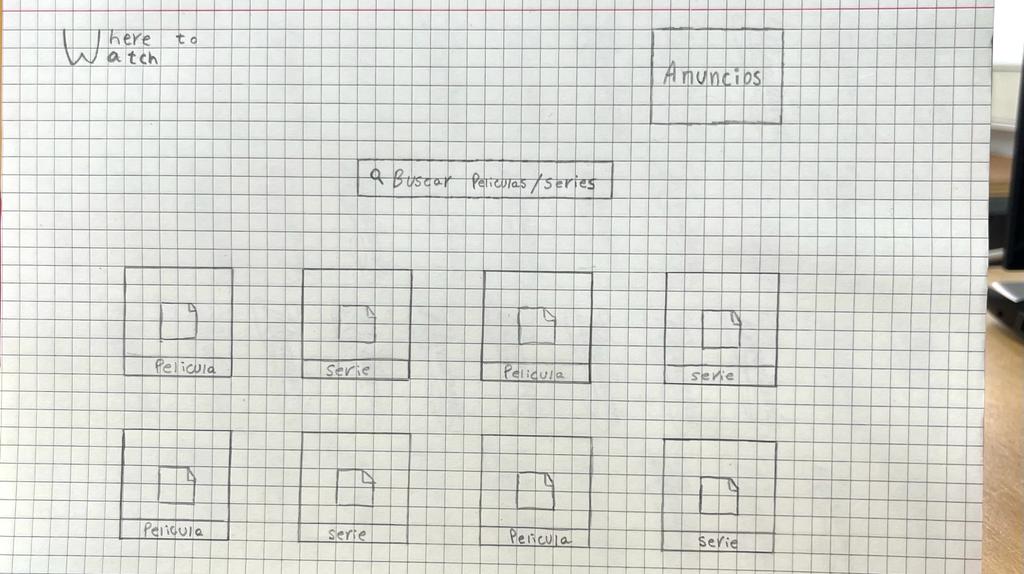 Where to
Watch
Anuncios
Buscar Peliculas/series
Pelicula
serie
Pelicula
serie
Pelicula
serie
Pelicula
serie